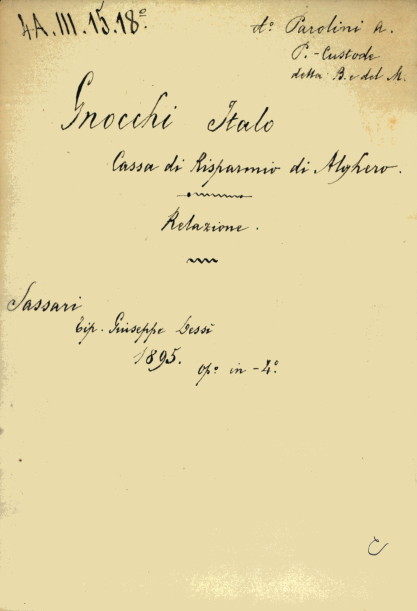 4A.III.15.18º.
dº Parolini A.
P.-Custode
della B. e del M.
Gnocchi Italo
Cassa di Risparmio di Alghero.
Relazione.
Sassari
Tip. Giuseppe Dessì
1895.
opº in-4º.